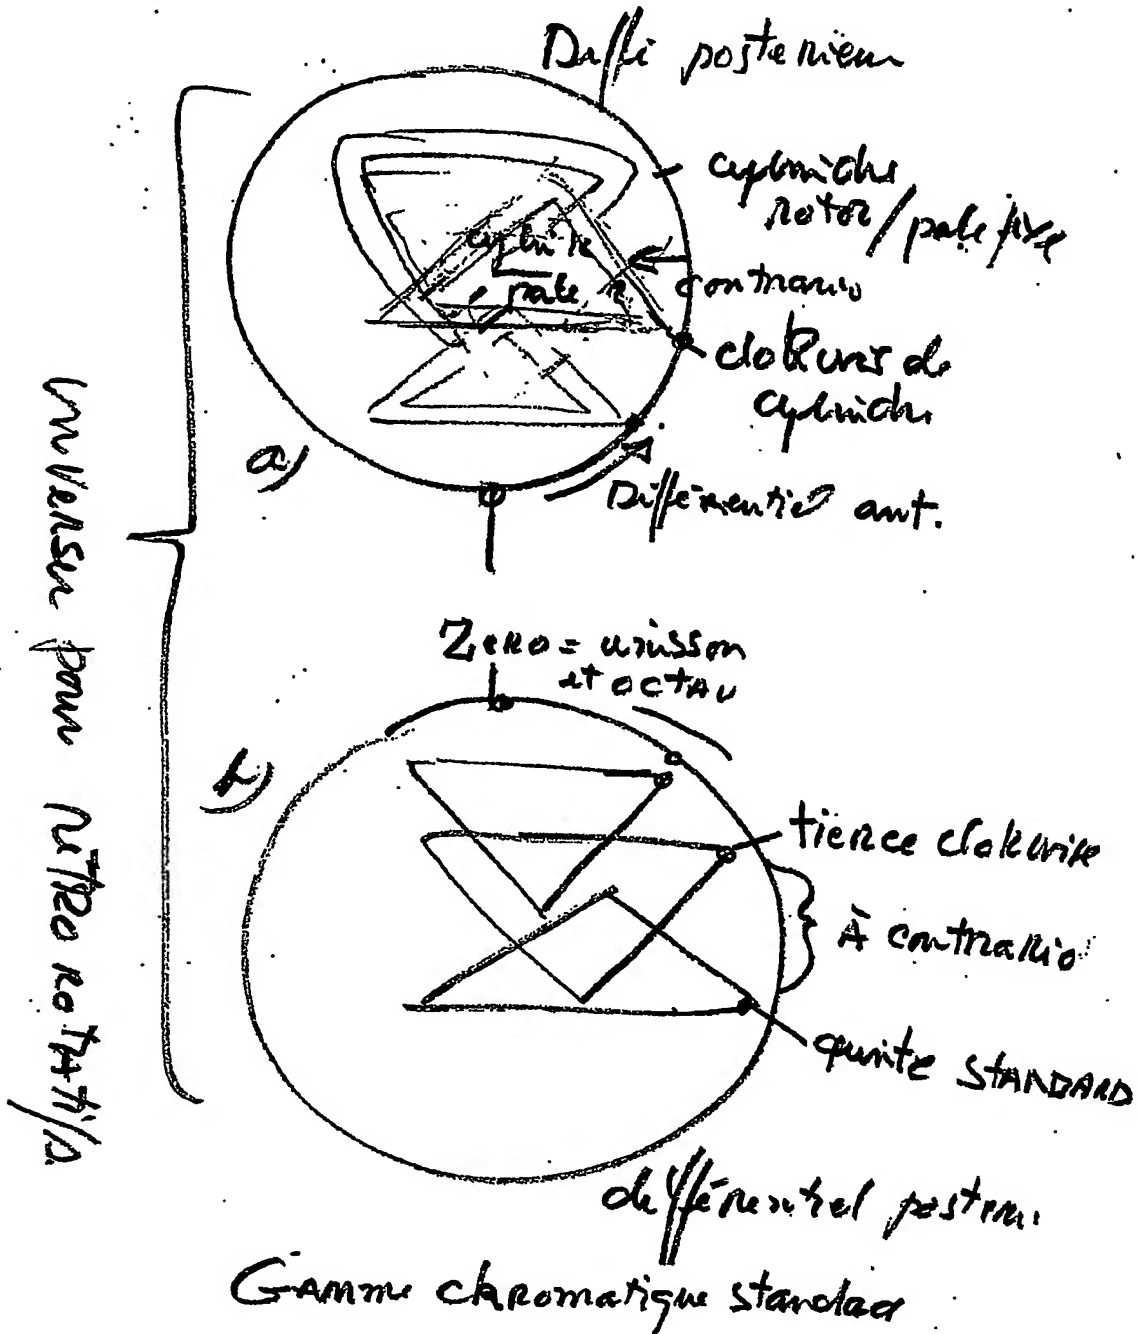 Diffé posterieur
cylindre
rotor/pale fixe
cylindre
pale
contrario
clokwis de
cylindre
a)
Différentiel ant.
Inverser pour rétrorotatif
Zero = unisson
et octav
b)
tierce clokwise
À contrario
quinte STANDARD
différentiel poster.
Gamme chromatique standard